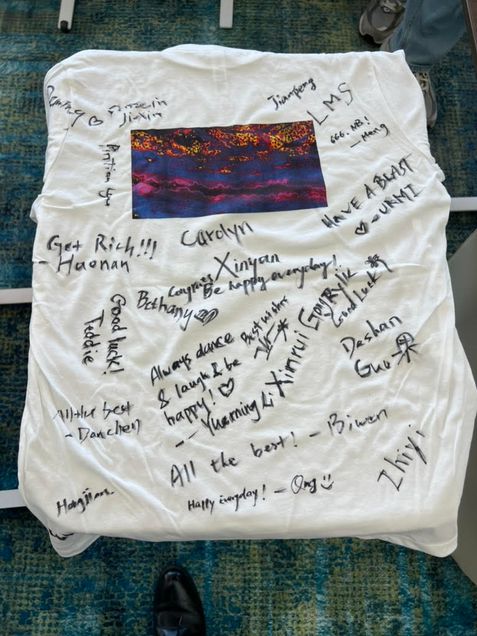 Jianpeng
LMS
Jiaxin
666. NB!
HAVE A BLAST
♡ - URMI
Carolyn
Get Rich!!!
- Haonan
Xinyan
Congrats
Be happy everyday!
Bethany
Good luck!
Teddie
Best wishes
Good Luck
Always dance
& laugh & be
happy! ♡
-- Yueming Li
Xinrui
Dashan
Guo 果
All the best
- Danchen
All the best! - Biwen
Zhiyi
Happy everyday! -